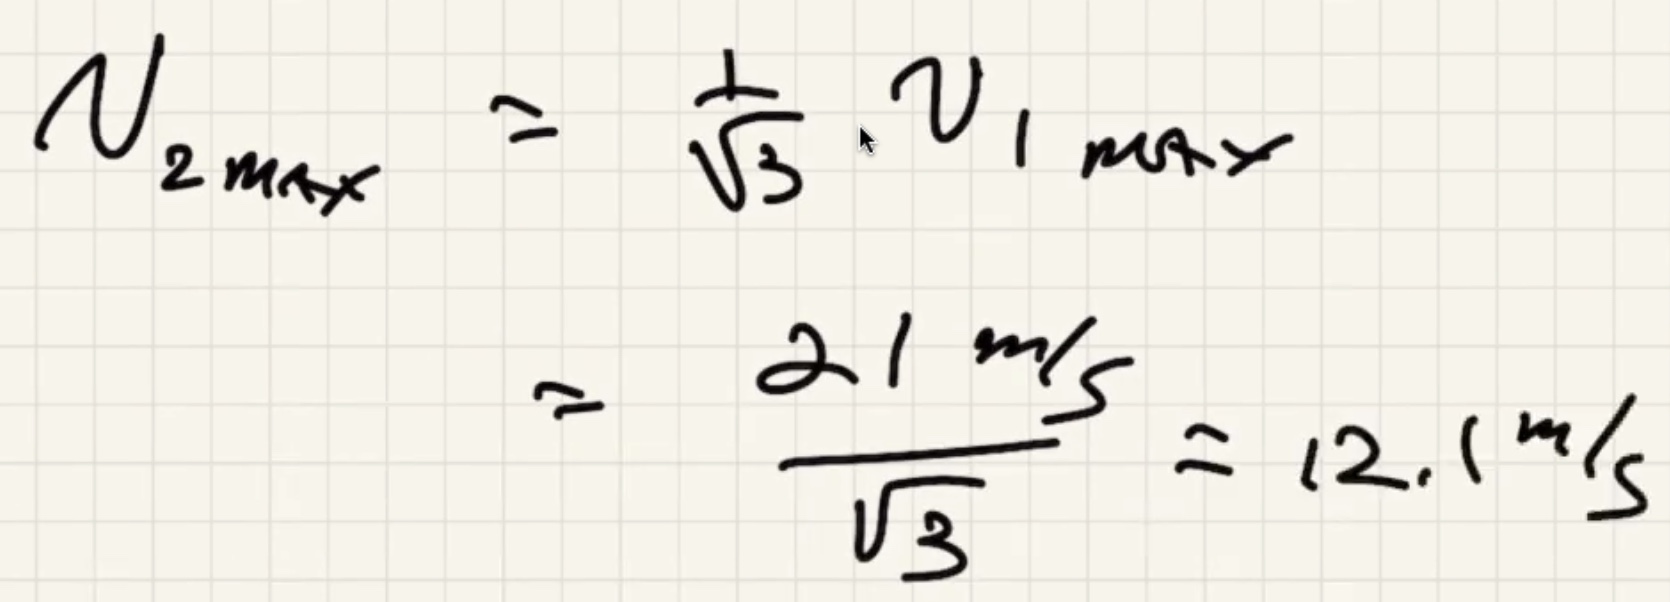 v₂ₘₐₓ = 1/√3 · v₁ₘₐₓ
= 21 m/s / √3 = 12.1 m/s